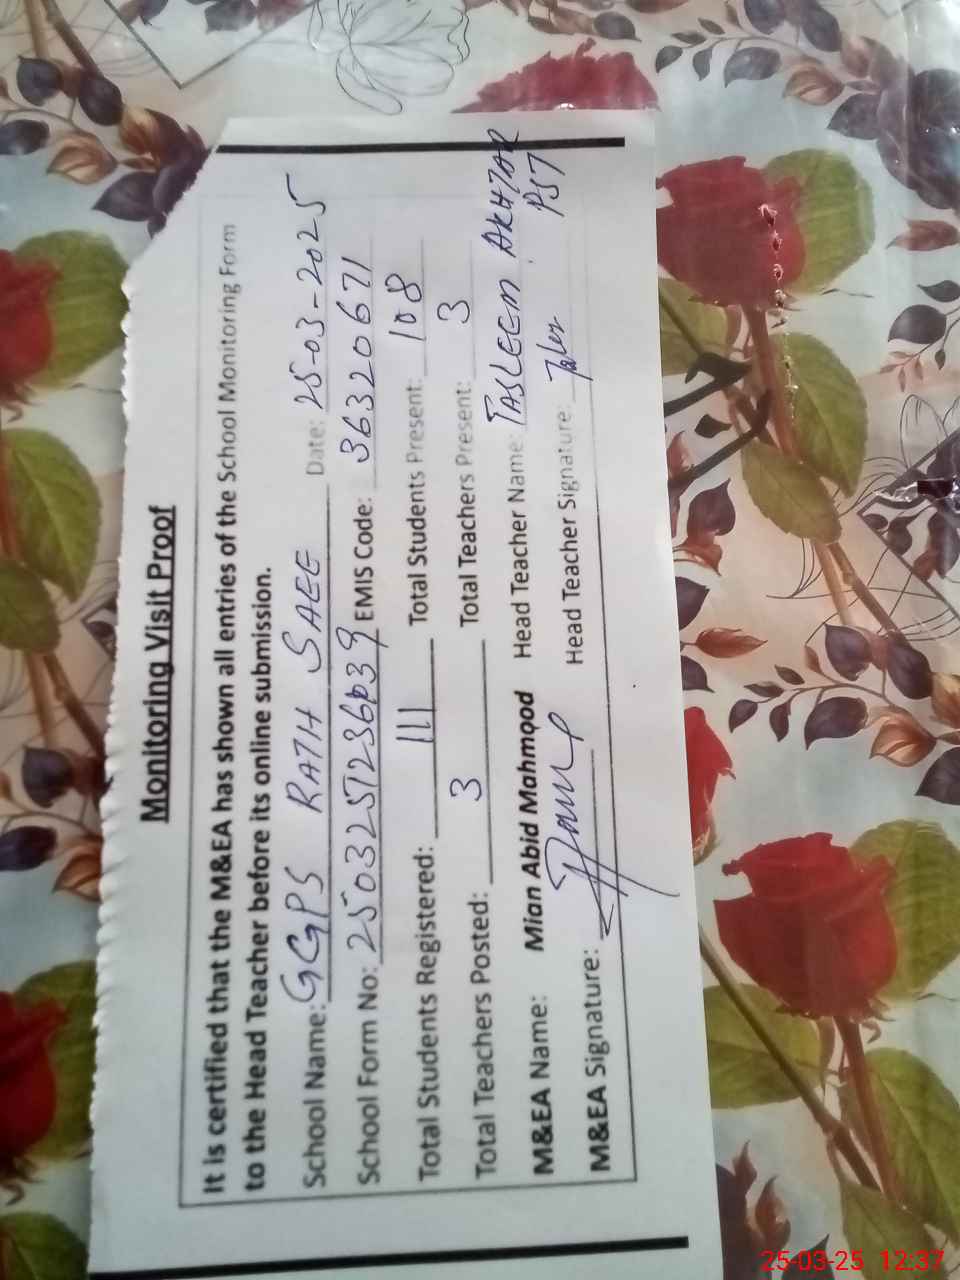 Monitoring Visit Proof
It is certified that the M&EA has shown all entries of the School Monitoring Form
to the Head Teacher before its online submission.
School Name: GGPS RATH SAEE Date: 25-03-2025
School Form No: EMIS Code: 36320671
Total Students Registered: 111 Total Students Present: 108
Total Teachers Posted: 3 Total Teachers Present: 3
M&EA Name: Mian Abid Mahmood Head Teacher Name: TASLEEM AKHTAR
M&EA Signature: Head Teacher Signature: PST
25-03-25 12:37